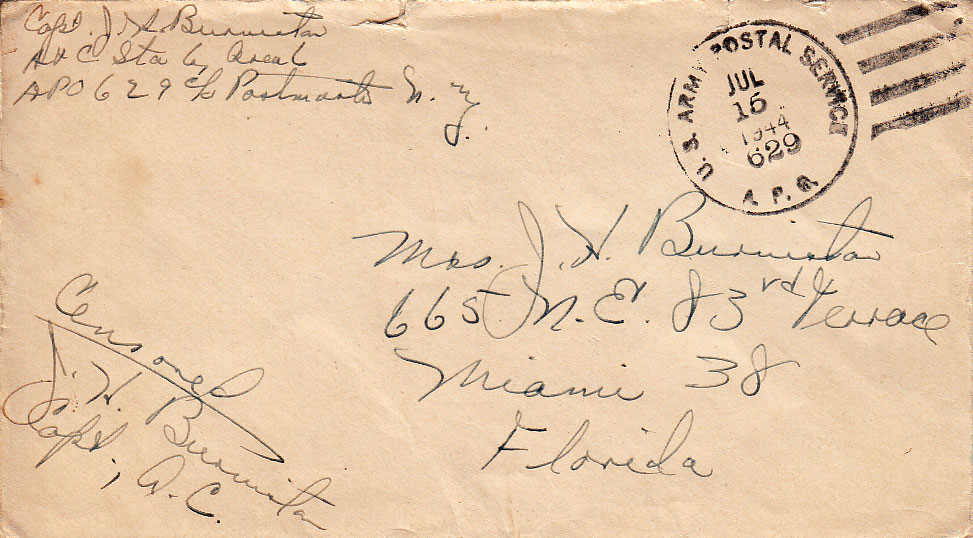 Capt. J. H. Burmister
A+C Sta 6, Area 6
APO 629 c/o Postmaster N. Y.
U. S. ARMY POSTAL SERVICE
JUL
15
1944
629
A. P. O.
Mrs. J. H. Burmister
665 N. E. 83rd Terrace
Miami 38
Florida
Censored
J. H. Burmister
Capt., A.C.